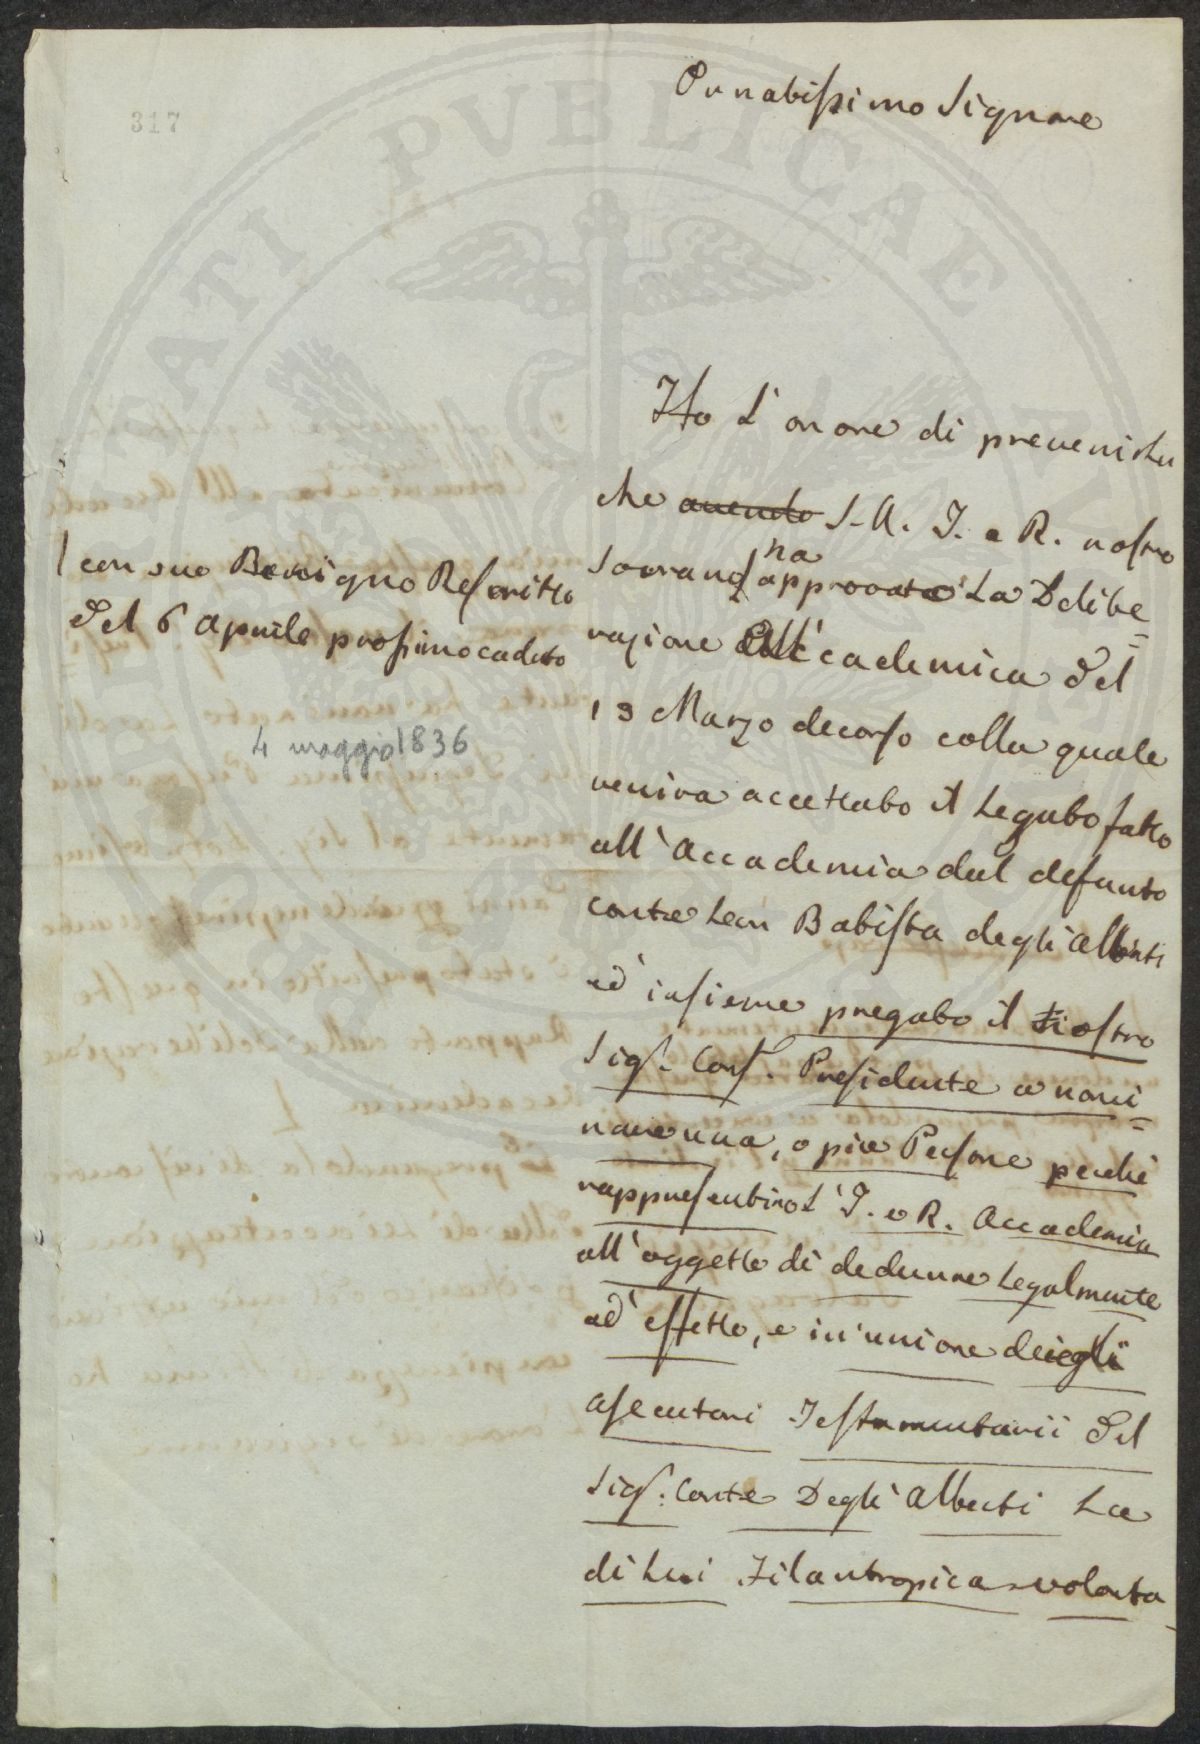 317
Onnorabissimo Signore
Ho L'onore di prevenirLa
che avendo S. A. I. e R. nostro
Sovrano ha approvata La Delibe=
razione Accademica del
13 Marzo decorso colla quale
veniva accettato il Legato fatto
all'Accademia dal defunto
conte Leon Batista degli Alberti
ed insieme pregato il nostro
Sigr. Conf. Presidente a nomi=
nare una, o piu Persone perchè
rappresentino L'I. e R. Accademia
all'oggetto di dedurre Legalmente
ad effetto, e in unione degli
Esecutori Testamentarii del
Sigr. Conte Degli Alberti La
di Lui Filantropica volonta
/ con suo Benigno Rescritto
del 6 Aprile prossimo caduto
4 maggio 1836
PVBLICAE